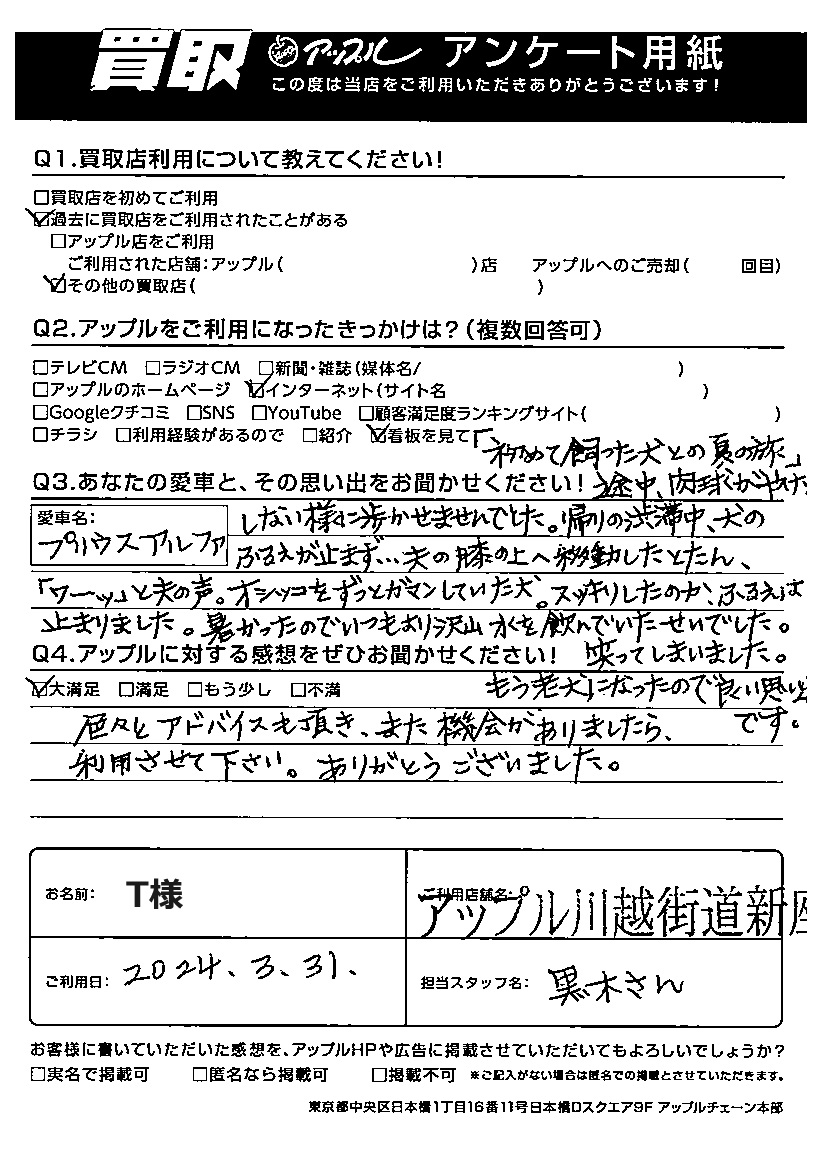 買取 アップル アンケート用紙
この度は当店をご利用いただきありがとうございます!
Q1.買取店利用について教えてください!
□買取店を初めてご利用
☑過去に買取店をご利用されたことがある
□アップル店をご利用
ご利用された店舗:アップル( )店 アップルへのご売却( 回目)
☑その他の買取店( )
Q2.アップルをご利用になったきっかけは?(複数回答可)
□テレビCM □ラジオCM □新聞・雑誌(媒体名/ )
□アップルのホームページ ☑インターネット(サイト名 )
□Googleクチコミ □SNS □YouTube □顧客満足度ランキングサイト( )
□チラシ □利用経験があるので □紹介 ☑看板を見て
「初めて飼った犬との夏の旅」
Q3.あなたの愛車と、その思い出をお聞かせください!
途中、肉球がやけど
愛車名:
プリウスアルファ
しない様に歩かせませんでした。帰りの渋滞中、犬の
ふるえが止まず…夫の膝の上へ移動したとたん、
「ワーッ」と夫の声。オシッコをずっとガマンしていた犬。スッキリしたのか、ふるえは
止まりました。暑かったのでいつもより沢山水を飲んでいたせいでした。
Q4.アップルに対する感想をぜひお聞かせください!
笑ってしまいました。
☑大満足 □満足 □もう少し □不満
もう老犬になったので良い思い出
です。
色々とアドバイスも頂き、また機会がありましたら、
利用させて下さい。ありがとうございました。
お名前: T様
ご利用店舗名:
アップル川越街道新座
ご利用日: 2024.3.31.
担当スタッフ名: 黒木さん
お客様に書いていただいた感想を、アップルHPや広告に掲載させていただいてもよろしいでしょうか?
□実名で掲載可 □匿名なら掲載可 □掲載不可 ※ご記入がない場合は匿名での掲載とさせていただきます。
東京都中央区日本橋1丁目16番11号日本橋Dスクエア9F アップルチェーン本部